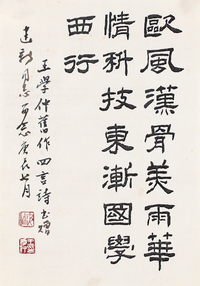 歐風漢骨美雨華
情科技東漸國學
西行
王學仲舊作四言詩
同志 庚辰七月